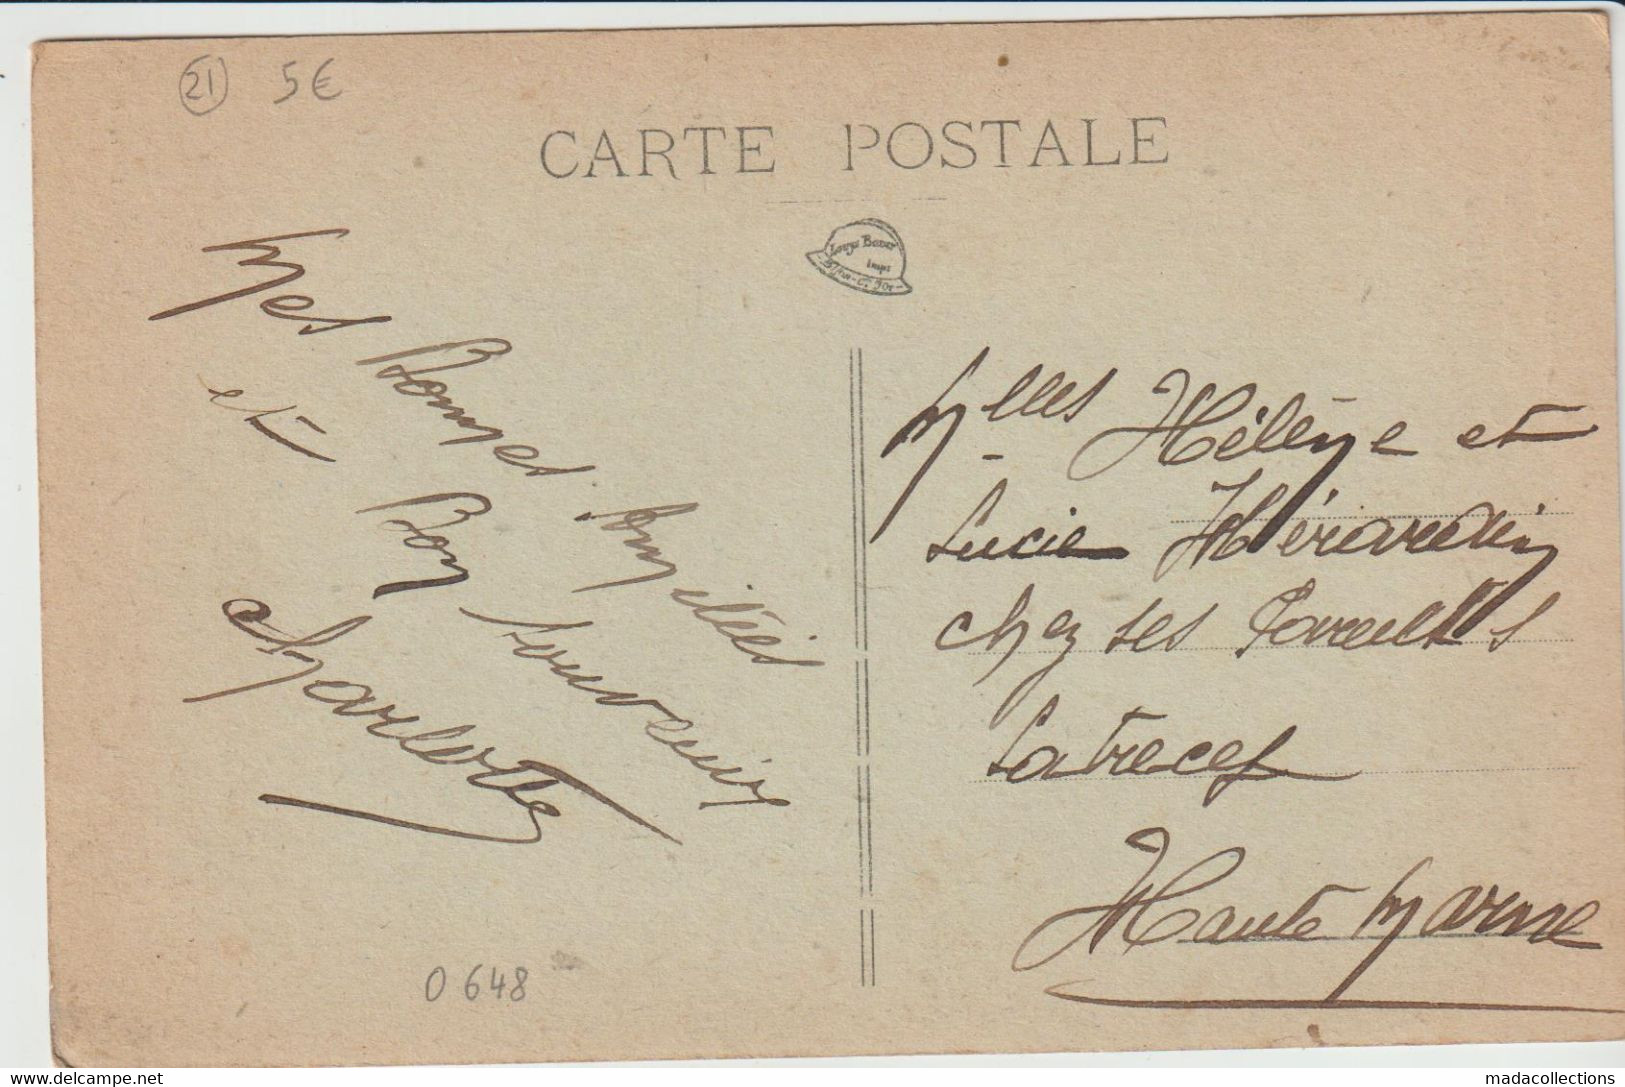 21 5€
CARTE POSTALE
Louys Bauer
Imps
Dijon-C. d'Or-
Mes Bonnes Amitiés
et Bon Souvenir
Charlotte
Mlles Hélène et
Lucie
chez ses Parents
Latrecey
Haute Marne
0 648
www.delcampe.net
madacollections